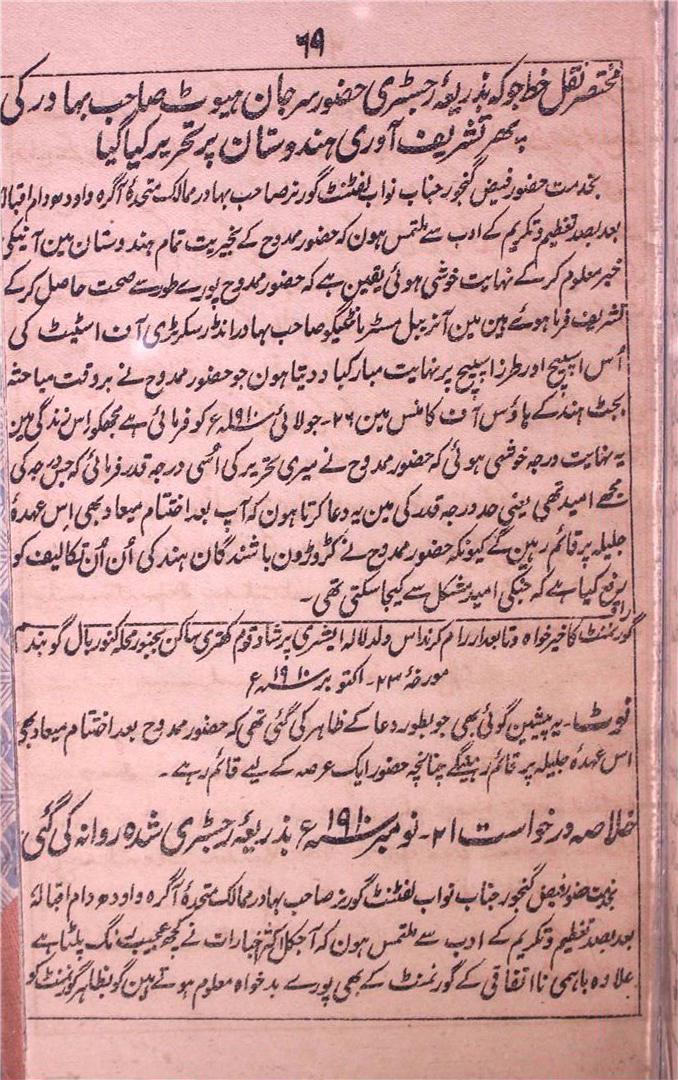 ۶۹
مختصر نقل خط جو کہ بذریعۂ رجسٹری حضور سر جان ہیوٹ صاحب بہادر کی
پھر تشریف آوری ہندوستان پر تحریر کیا گیا
بخدمت حضور فیض گنجور جناب نواب لفٹنٹ گورنر صاحب بہادر ممالک متحدۂ آگرہ و اودھ دام اقبالہ
بعد بصد تعظیم و تکریم کے ادب سے ملتمس ہون کہ حضور ممدوح کے بخیریت تمام ہندوستان مین آنیکی
خبر معلوم کر کے نہایت خوشی ہوئی یقین ہے کہ حضور ممدوح پورے طور سے صحت حاصل کر کے
تشریف فرما ہوئے ہین مین آنریبل مسٹر مانٹیگو صاحب بہادر انڈر سکرٹری آف اسٹیٹ کی
اُس اسپیچ اور طرز اسپیچ پر نہایت مبارکباد دیتا ہون جو حضور ممدوح نے بر وقت مباحثہ
بجٹ ہند کے ہاؤس آف کامنس مین ۲۶۔ جولائی سنہ ۱۹۱۰ء کو فرمائی ہے مجھکو اس زندگی مین
یہ نہایت درجہ خوشی ہوئی کہ حضور ممدوح نے میری تحریر کی اُسی درجہ قدر فرمائی کہ جس درجہ کی
مجھے امید تھی یعنی حد درجہ قدر کی مین یہ دعا کرتا ہون کہ آپ بعد اختتام میعاد بھی اس عہدۂ
جلیلہ پر قائم رہین گے کیونکہ حضور ممدوح نے کڑوڑون باشندگان ہند کی اُن اُن تکالیف کو
رفع کیا ہے کہ جنکی امید مشکل سے کیجا سکتی تھی۔
گورنمنٹ کا خیر خواہ و تابعدار رام کرنداس ولد لالہ ایشری پرشاد قوم کھتری ساکن بجنور محلہ کنور بال گوبند
مورخۂ ۲۳۔ اکتوبر سنہ ۱۹۱۰ء
نوٹ۔ یہ پیشین گوئی بھی جو بطور دعا کے ظاہر کی گئی تھی کہ حضور ممدوح بعد اختتام میعاد بھی
اس عہدۂ جلیلہ پر قائم رہینگے چنانچہ حضور ایک عرصہ کے لیے قائم رہے۔
خلاصہ درخواست ۲۱۔ نومبر سنہ ۱۹۱۰ء بذریعۂ رجسٹری شدہ روانہ کی گئی
بخدمت حضور فیض گنجور جناب نواب لفٹنٹ گورنر صاحب بہادر ممالک متحدۂ آگرہ و اودھ دام اقبالہ
بعد بصد تعظیم و تکریم کے ادب سے ملتمس ہون کہ آجکل اکثر اخبارات نے کچھ عجیب رنگ پلٹا ہے
علاوہ باہمی نااتفاقی کے گورنمنٹ کے بھی پورے بدخواہ معلوم ہوتے ہین گو بظاہر گورنمنٹ کو